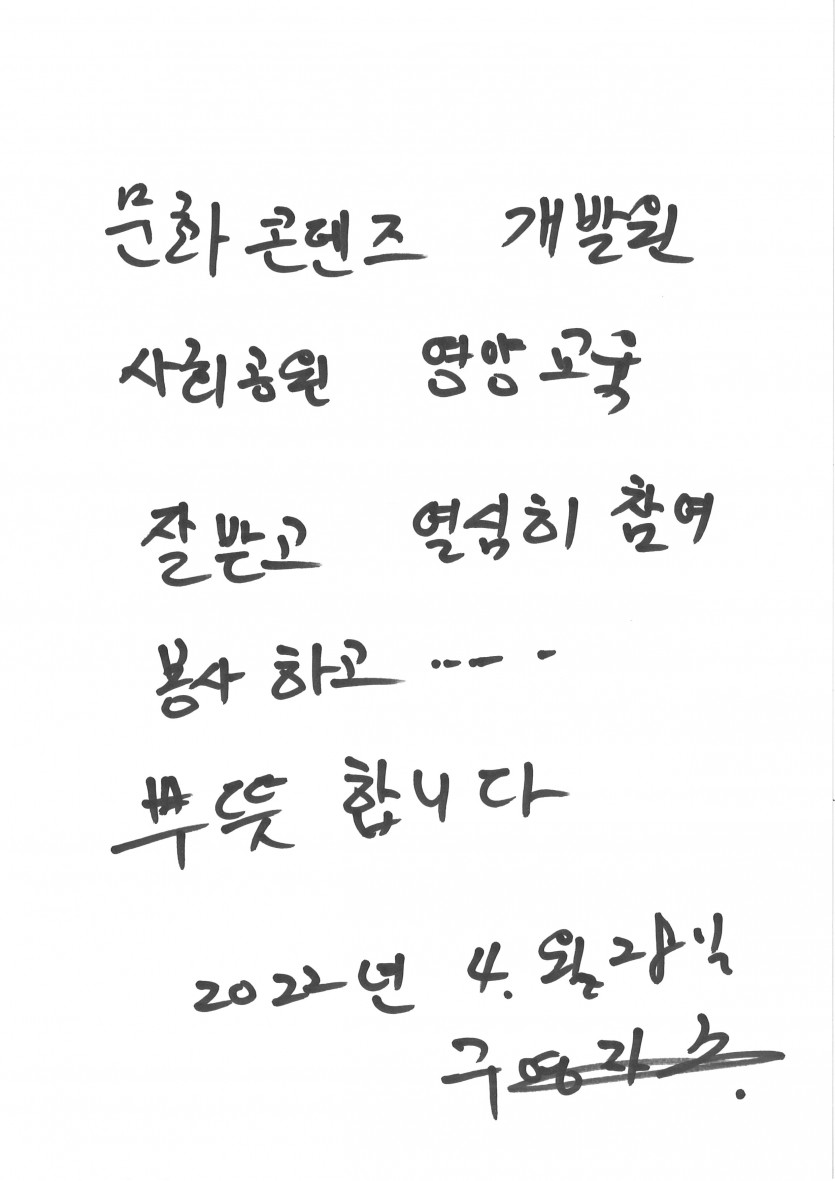 문화 콘텐즈 개발원
사회공원 영양 교육
잘 받고 열심히 참여
봉사 하고 ····
뿌뜻 합니다
2022년 4. 월 일
구영자